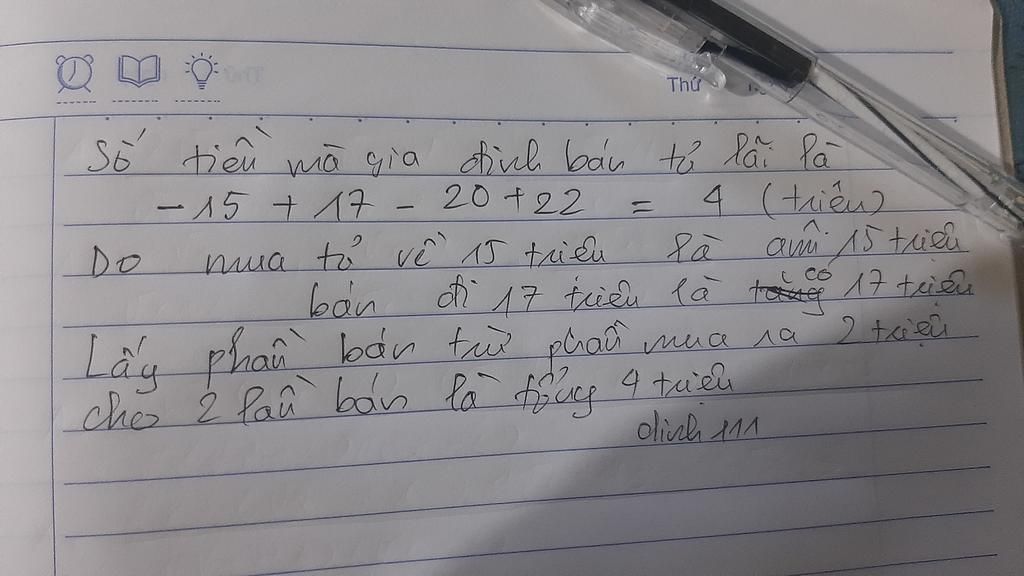 Thứ
Số tiền mà gia đình bán tủ lãi là
-15 + 17 - 20 + 22 = 4 (triệu)
Do mua tủ về 15 triệu là âm 15 triệu
bán đi 17 triệu là có 17 triệu
Lấy phần bán trừ phần mua ra 2 triệu
cho 2 lần bán là tổng 4 triệu
dinh 111